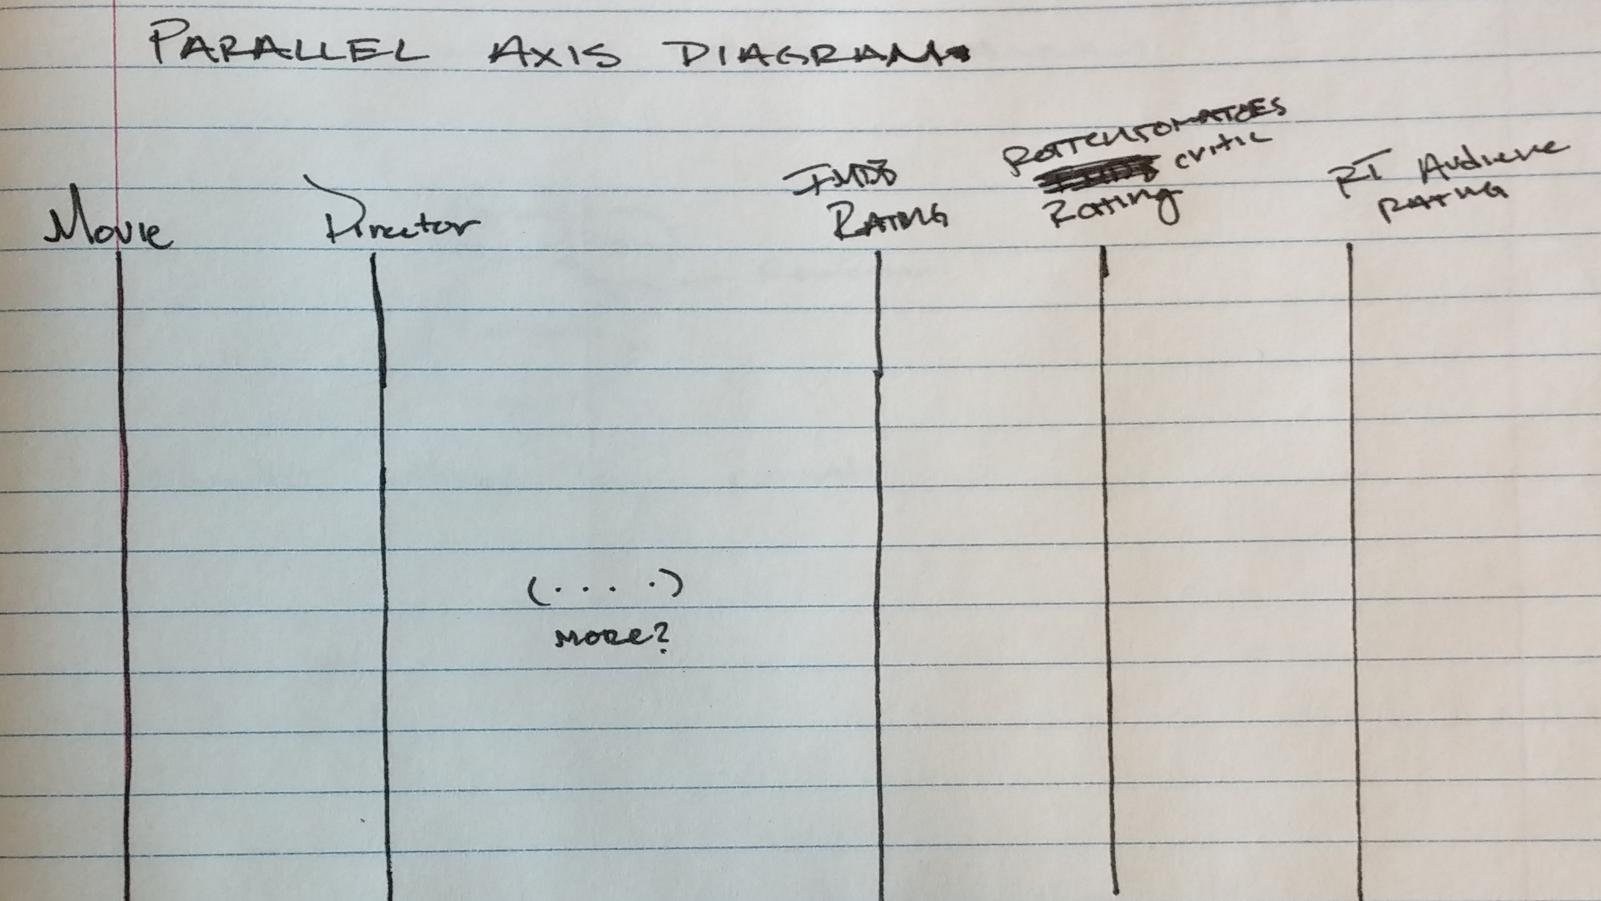 PARALLEL AXIS DIAGRAM
Movie
Director
(....)
more?
IMDB
RATING
ROTTENTOMATOES
critic
Rating
RT Audience
RATING